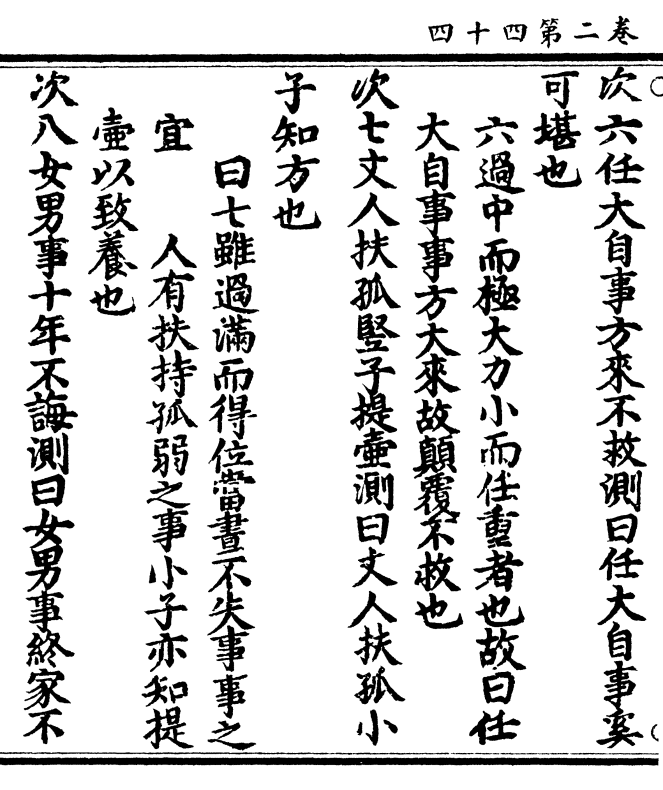 卷二第四十四
次六任大自事方來不救測曰任大自事奚
可堪也
六過中而極大力小而任重者也故曰任
大自事事方大來故顛覆不救也
次七丈人扶孤豎子提壷測曰丈人扶孤小
子知方也
曰七雖過滿而得位當晝不失事事之
宜 人有扶持孤弱之事小子亦知提
壷以致養也
次八女男事十年不誨測曰女男事終家不